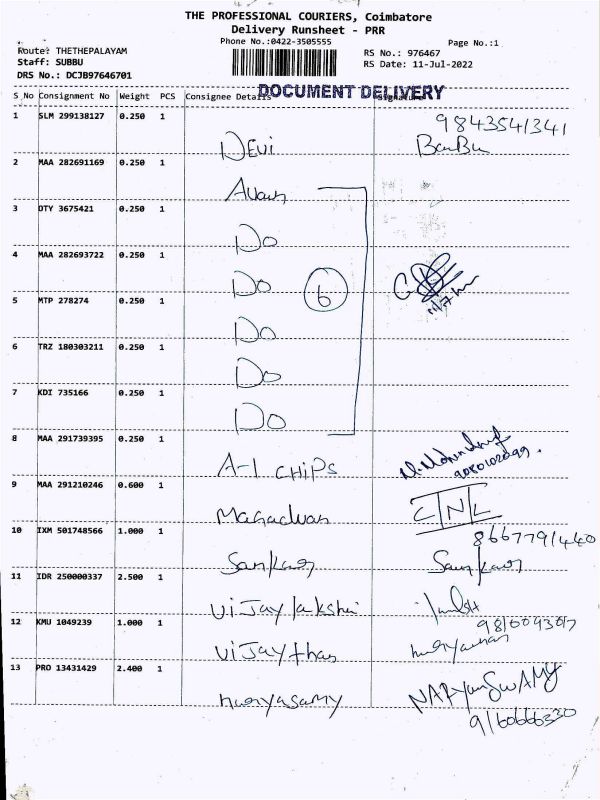 THE PROFESSIONAL COURIERS, Coimbatore
Delivery Runsheet - PRR
Phone No.:0422-3505555
Page No.:1
Route: THETHEPALAYAM
RS No.: 976467
Staff: SUBBU
RS Date: 11-Jul-2022
DRS No.: DCJB97646701
DOCUMENT DELIVERY
S_No Consignment No Weight PCS Consignee Details
1 SLM 299138127 0.250 1 Devi 9843541341
BanBu
2 MAA 282691169 0.250 1
3 DTY 3675421 0.250 1 Do
4 MAA 282693722 0.250 1 Do 6
5 MTP 278274 0.250 1 Do
6 TRZ 180303211 0.250 1 Do
7 KDI 735166 0.250 1 Do
8 MAA 291739395 0.250 1 A-1 CHIPS
9 MAA 291210246 0.600 1 C/N/L
10 IXM 501748566 1.000 1 Sankar 8667791440
Sankar
11 IDR 250000337 2.500 1 Vijaylakshmi
12 KMU 1049239 1.000 1 Vijaythan
13 PRO 13431429 2.400 1 naryasamy NARYanSWAMY
9160666330